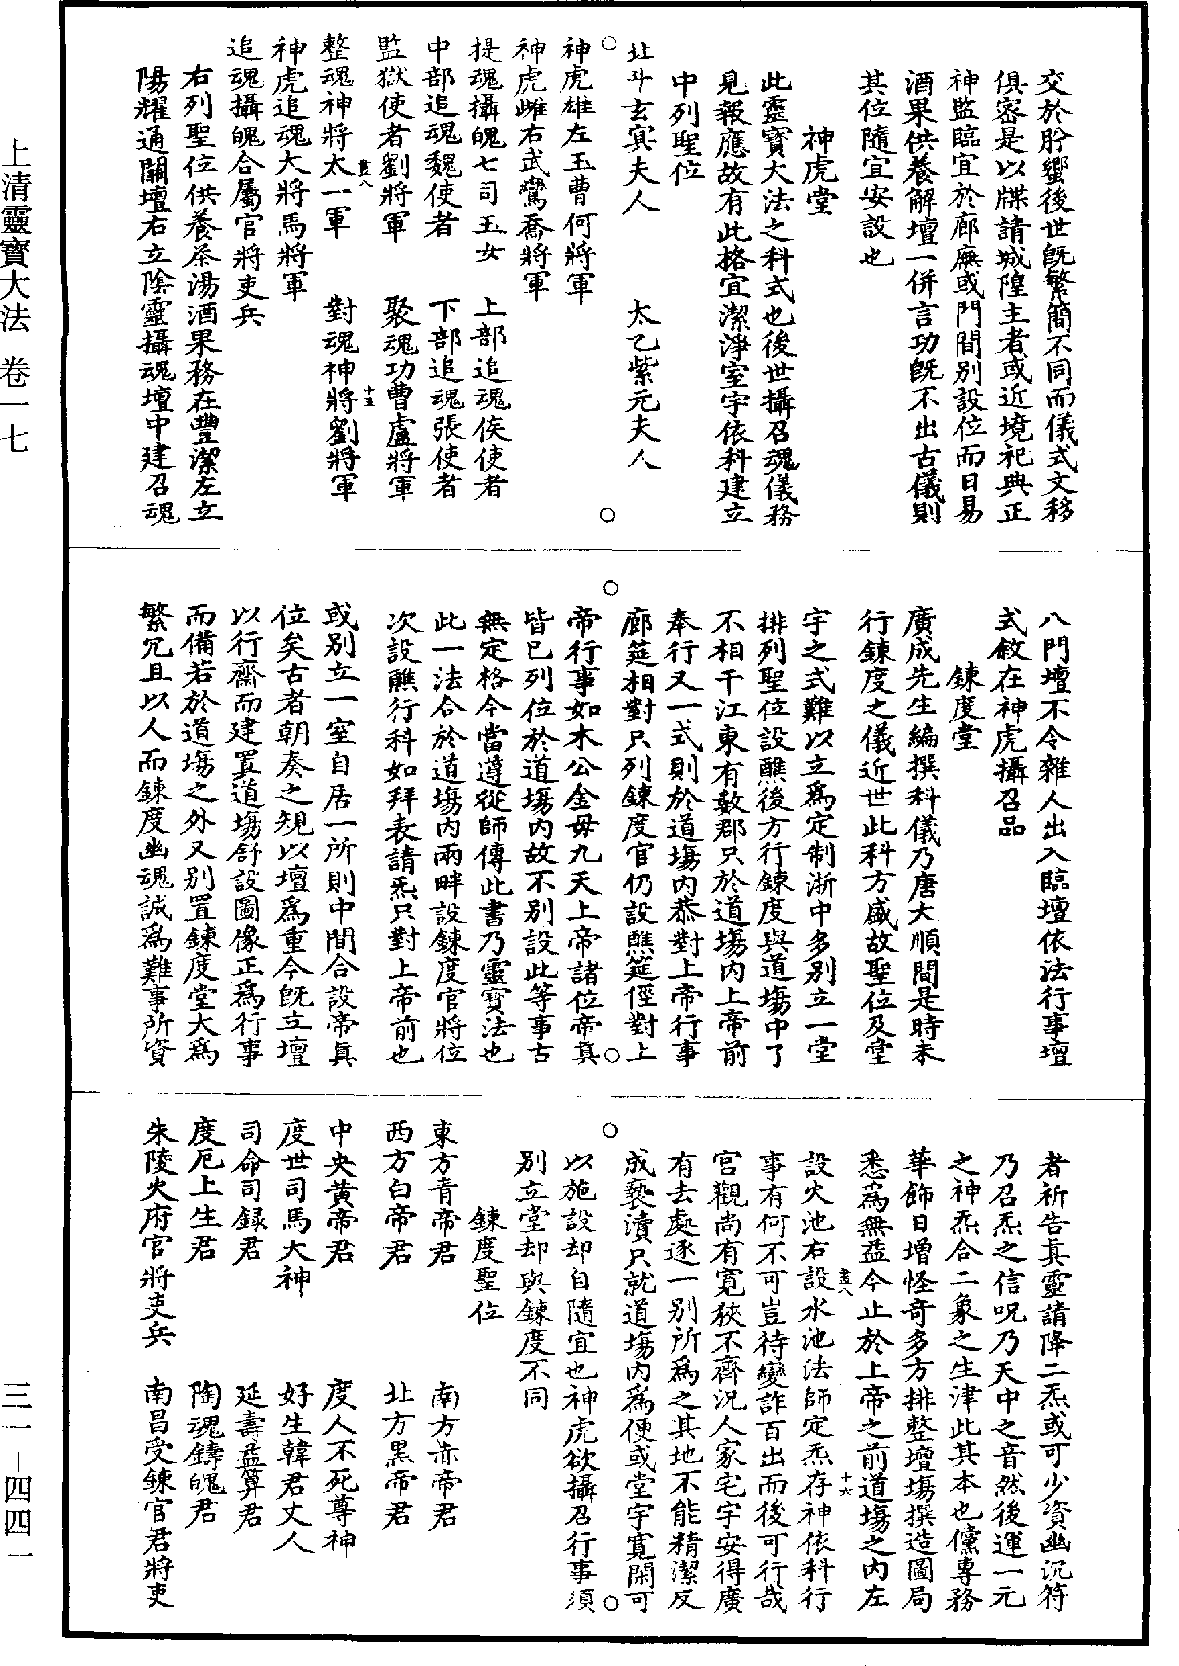 上清靈寶大法 卷一七
三一－四四一
交於肸蠁後世旣繁簡不同而儀式文移
俱密是以牒請城隍主者或近境祀典正
神監臨宜於廊廡或門間别設位而日易
酒果供養解壇一併言功旣不出古儀則
其位隨宜安設也
神虎堂
此靈寶大法之科式也後世攝召魂儀務
見報應故有此格宜潔淨室宇依科建立
中列聖位
北斗玄冥夫人　太乙紫元夫人
神虎雄左玉曹何將軍
神虎雌右武鸞喬將軍
提魂攝魄七司玉女　上部追魂侯使者
中部追魂魏使者　下部追魂張使者
監獄使者劉將軍　聚魂功曹盧將軍
壹八　十五
整魂神將太一軍　對魂神將劉將軍
神虎追魂大將馬將軍
追魂攝魄合屬官將吏兵
右列聖位供養茶湯酒果務在豐潔左立
陽耀通關壇右立陰靈攝魂壇中建召魂
八門壇不令雜人出入臨壇依法行事壇
式敘在神虎攝召品
鍊度堂
廣成先生編撰科儀乃唐大順間是時未
行鍊度之儀近世此科方盛故聖位及堂
宇之式難以立爲定制浙中多别立一堂
排列聖位設醮後方行鍊度與道塲中了
不相干江東有數郡只於道塲内上帝前
奉行又一式則於道塲内恭對上帝行事
廊筵相對只列鍊度官仍設醮筵徑對上
帝行事如木公金母九天上帝諸位帝真
皆已列位於道塲内故不别設此等事古
無定格今當遵從師傳此書乃靈寶法也
此一法合於道塲内兩畔設鍊度官將位
次設醮行科如拜表請炁只對上帝前也
或别立一室自居一所則中間合設帝真
位矣古者朝奏之規以壇爲重今旣立壇
以行齋而建置道塲舒設圖像正爲行事
而備若於道塲之外又别置鍊度堂大爲
繁冗且以人而鍊度幽魂誠爲難事所資
者祈告真靈請降二炁或可少資幽沉符
乃召炁之信呪乃天中之音然後運一元
之神炁合二象之生津此其本也儻專務
華飾日增怪奇多方排整壇塲撰造圖局
悉爲無益今止於上帝之前道塲之内左
壹八　十六
設火池右設水池法師定炁存神依科行
事有何不可豈待變詐百出而後可行哉
宮觀尚有寬狹不齊況人家宅宇安得廣
有去處逐一别所爲之其地不能精潔反
成褻瀆只就道塲内爲便或堂宇寬閑可
以施設却自隨宜也神虎欲攝召行事須
别立堂却與鍊度不同
鍊度聖位
東方青帝君　南方赤帝君
西方白帝君　北方黑帝君
中央黃帝君　度人不死尊神
度世司馬大神　好生韓君丈人
司命司録君　延壽益筭君
度厄上生君　陶魂鑄魄君
朱陵火府官將吏兵　南昌受鍊官君將吏